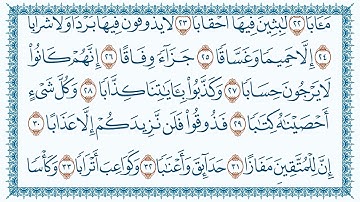 مَـَٔابًا ٢٢ لَّٰبِثِينَ فِيهَآ أَحْقَابًا ٢٣ لَّا يَذُوقُونَ فِيهَا بَرْدًا وَلَا شَرَابًا
٢٤ إِلَّا حَمِيمًا وَغَسَّاقًا ٢٥ جَزَآءً وِفَاقًا ٢٦ إِنَّهُمْ كَانُوا۟
لَا يَرْجُونَ حِسَابًا ٢٧ وَكَذَّبُوا۟ بِـَٔايَٰتِنَا كِذَّابًا ٢٨ وَكُلَّ شَىْءٍ
أَحْصَيْنَٰهُ كِتَٰبًا ٢٩ فَذُوقُوا۟ فَلَن نَّزِيدَكُمْ إِلَّا عَذَابًا ٣٠
إِنَّ لِلْمُتَّقِينَ مَفَازًا ٣١ حَدَآئِقَ وَأَعْنَٰبًا ٣٢ وَكَوَاعِبَ أَتْرَابًا ٣٣ وَكَأْسًا